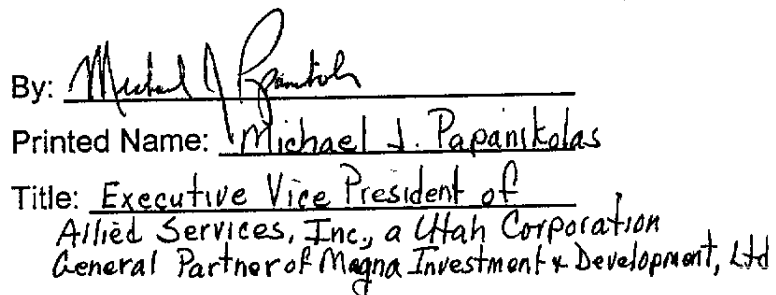 By: Michael J Papanikolas
Printed Name: Michael J. Papanikolas
Title: Executive Vice President of
Allied Services, Inc., a Utah Corporation
General Partner of Magna Investment & Development, Ltd